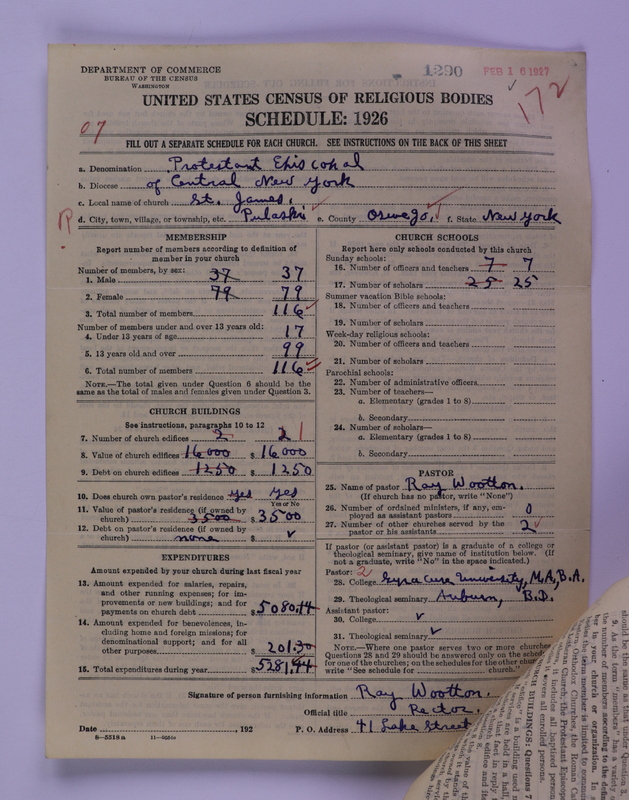 DEPARTMENT OF COMMERCE
BUREAU OF THE CENSUS
WASHINGTON
1290 FEB 16 1927
172
UNITED STATES CENSUS OF RELIGIOUS BODIES
SCHEDULE: 1926
07
FILL OUT A SEPARATE SCHEDULE FOR EACH CHURCH. SEE INSTRUCTIONS ON THE BACK OF THIS SHEET
a. Denomination Protestant Episcopal
b. Diocese of Central New York
c. Local name of church St. James.
R
d. City, town, village, or township, etc. Pulaski e. County Oswego. f. State New York
MEMBERSHIP
Report number of members according to definition of
member in your church
Number of members, by sex:
1. Male 37 37
2. Female 79 79
3. Total number of members 116
Number of members under and over 13 years old:
4. Under 13 years of age 17
5. 13 years old and over 99
6. Total number of members 116
NOTE.—The total given under Question 6 should be the
same as the total of males and females given under Question 3.
CHURCH BUILDINGS
See instructions, paragraphs 10 to 12
7. Number of church edifices 2 2 1
8. Value of church edifices 16000 $ 16000
9. Debt on church edifices 1250 $ 1250
10. Does church own pastor's residence yes yes
Yes or No
11. Value of pastor's residence (if owned by
church) 3500 $ 3500
12. Debt on pastor's residence (if owned by
church) none $
EXPENDITURES
Amount expended by your church during last fiscal year
13. Amount expended for salaries, repairs,
and other running expenses; for im-
provements or new buildings; and for
payments on church debt $ 5080.14
14. Amount expended for benevolences, in-
cluding home and foreign missions; for
denominational support; and for all
other purposes 201.30
15. Total expenditures during year $ 5281.44
CHURCH SCHOOLS
Report here only schools conducted by this church
Sunday schools:
16. Number of officers and teachers 7 7
17. Number of scholars 25 25
Summer vacation Bible schools:
18. Number of officers and teachers
19. Number of scholars
Week-day religious schools:
20. Number of officers and teachers
21. Number of scholars
Parochial schools:
22. Number of administrative officers
23. Number of teachers—
a. Elementary (grades 1 to 8)
b. Secondary
24. Number of scholars—
a. Elementary (grades 1 to 8)
b. Secondary
PASTOR
25. Name of pastor Ray Wootton.
(If church has no pastor, write "None")
26. Number of ordained ministers, if any, em-
ployed as assistant pastors 0
27. Number of other churches served by the
pastor or his assistants 2
If pastor (or assistant pastor) is a graduate of a college or
theological seminary, give name of institution below. (If
not a graduate, write "No" in the space indicated.)
Pastor: 2
28. College Syracuse University, M.A, B.A.
29. Theological seminary Auburn, B.D.
Assistant pastor:
30. College
31. Theological seminary
NOTE.—Where one pastor serves two or more churches
Questions 28 and 29 should be answered only on the sched
for one of the churches; on the schedules for the other chur
write "See schedule for church."
Signature of person furnishing information Ray Wootton.
Official title Rector.
Date , 192 P. O. Address 41 Lake Street
8-5518a 11-